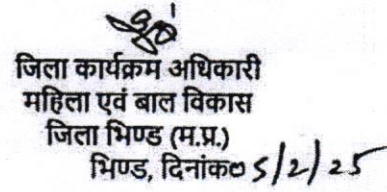 जिला कार्यक्रम अधिकारी
महिला एवं बाल विकास
जिला भिण्ड (म.प्र.)
भिण्ड, दिनांक 05/2/25